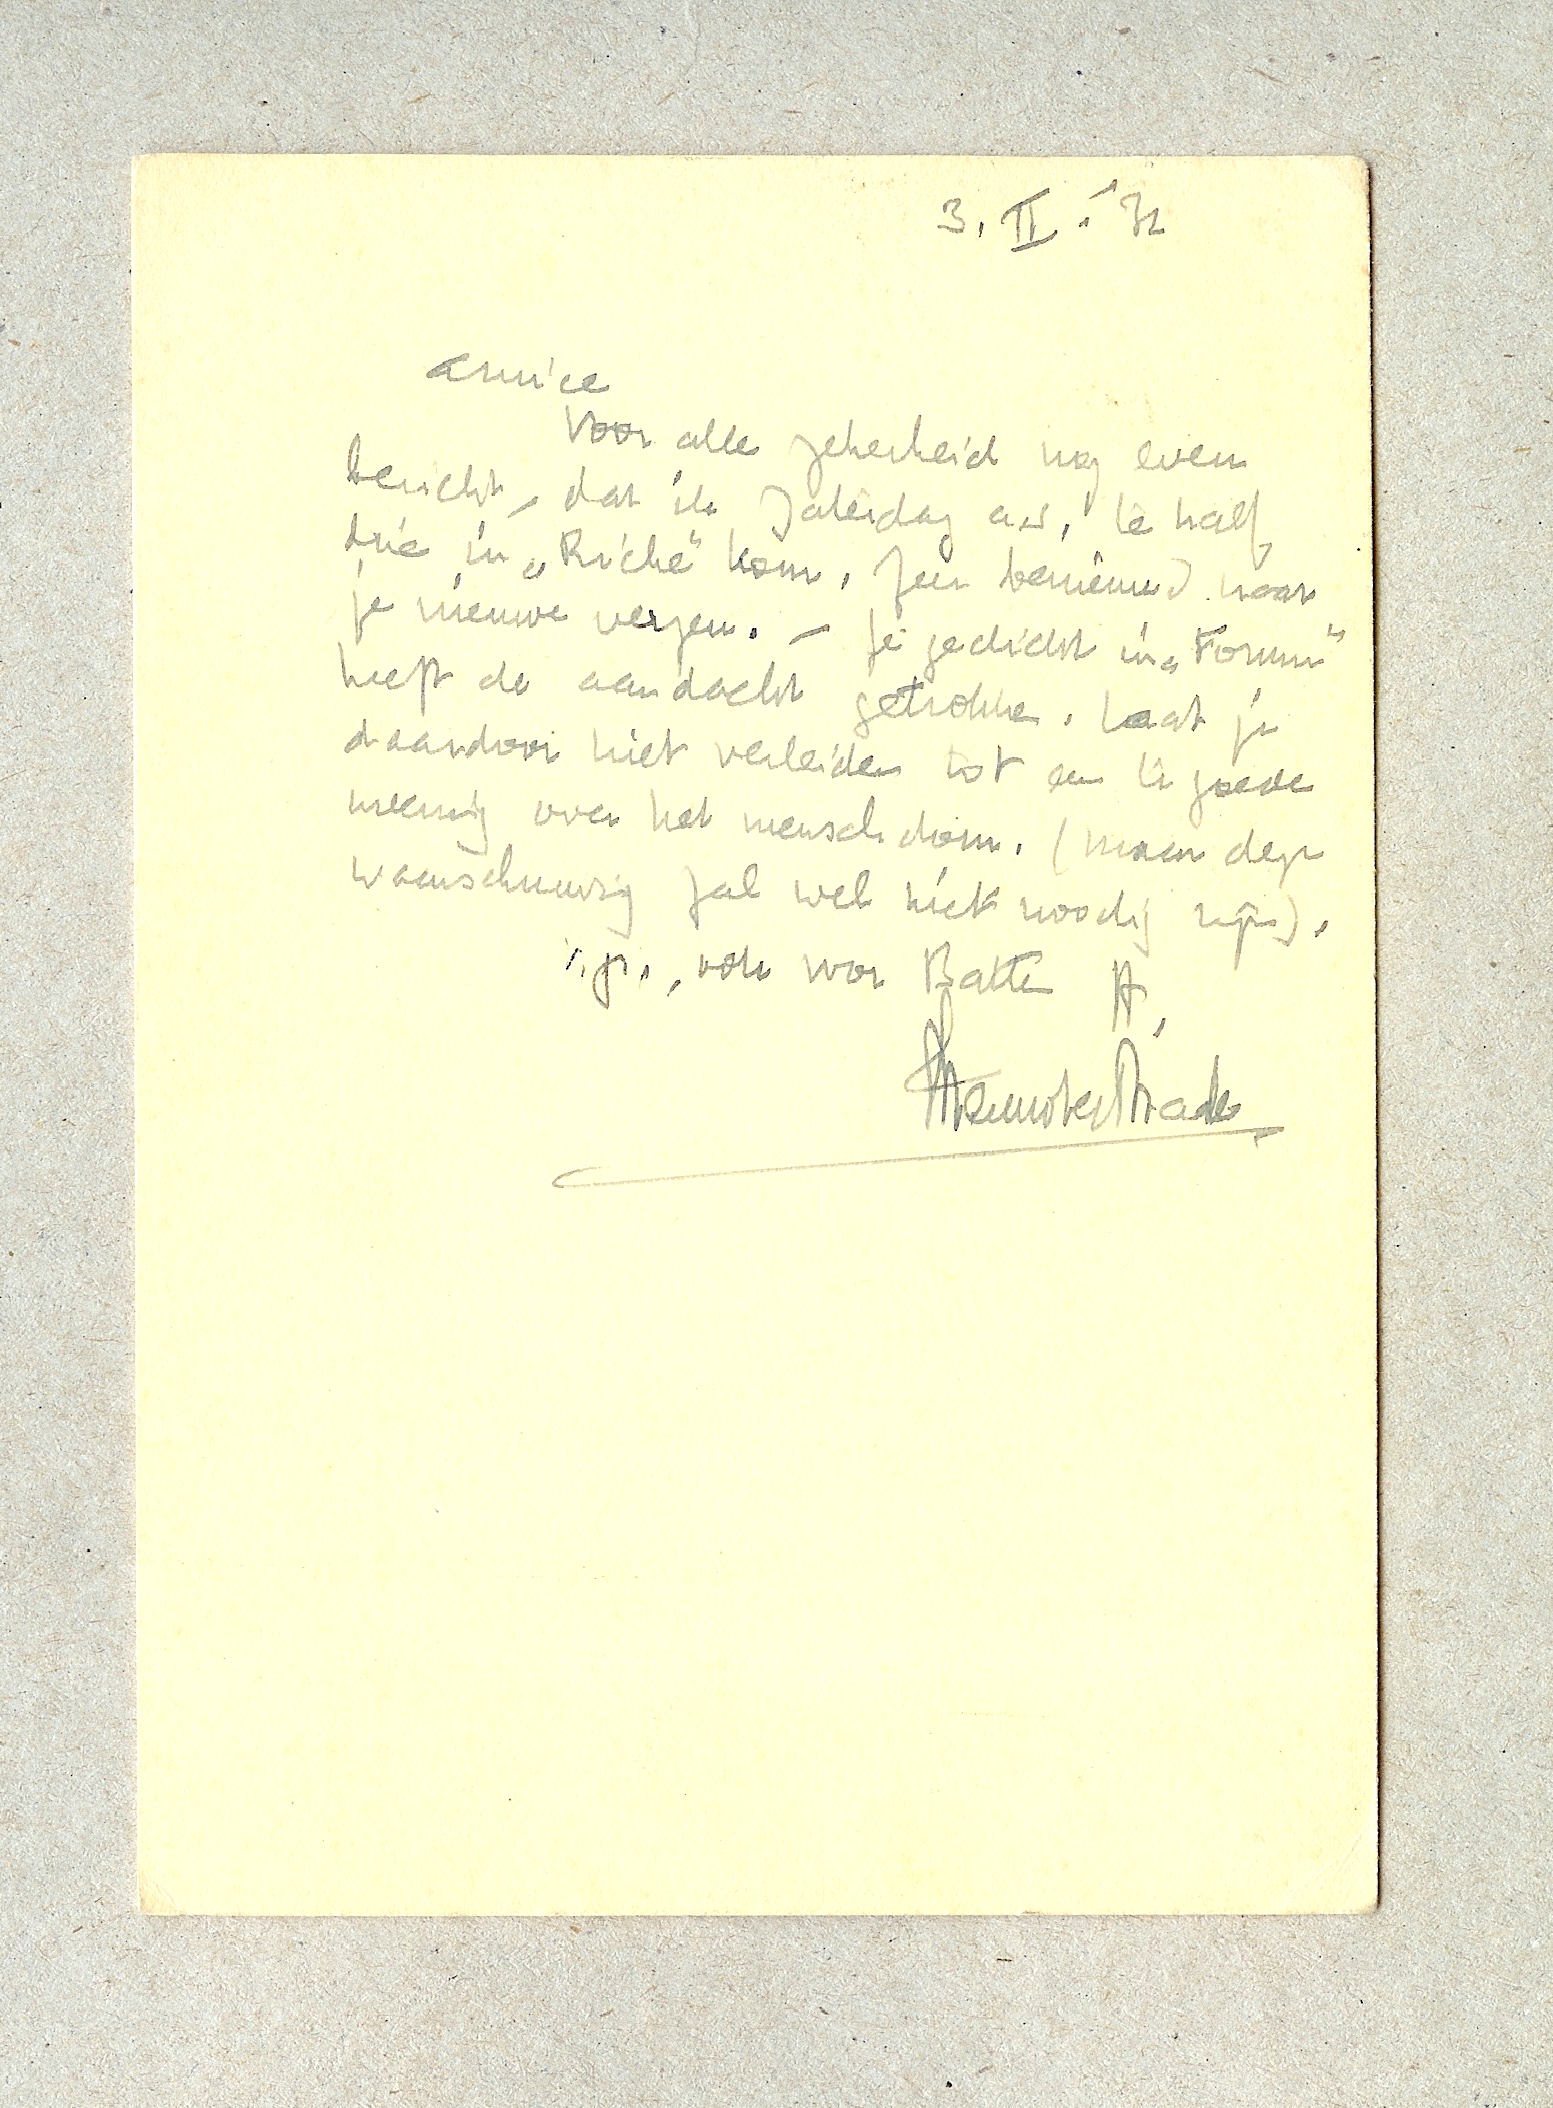 3. II. '32
amice
Voor alle zekerheid nog even
bericht, dat ik Zaterdag a.s. te half
drie in „Riche" kom. Zeer benieuwd naar
je nieuwe verzen. – Je gedicht in „Forum"
heeft de aandacht getrokken. Laat je
daardoor niet verleiden tot een te goede
meening over het menschdom. (maar deze
waarschuwing zal wel niet noodig zijn).
t.g., ook voor Batten
Menno ter Braak